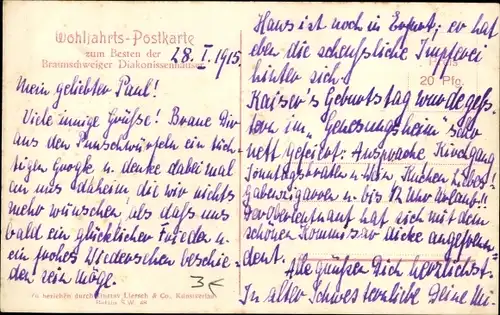 Wohlfahrts-Postkarte
zum Besten der
Braunschweiger Diakonissenanstalt
28. I. 1915.
Mein geliebter Paul!
Viele innige Grüße! Braue Dir
aus den Punschwürfeln ein tüch-
tigen Grogk u. denke dabei mal
an uns daheim die wir nichts
mehr wünschen als daß uns
bald ein glücklicher Frieden u.
ein frohes Wiedersehen beschie-
den sein möge.
3€
Zu beziehen durch Gustav Liersch & Co., Kunstverlag
Berlin S.W. 48
Preis
20 Pfg.
Hans ist noch in Erfurt; er hat
eben die scheussliche Impferei
hinter sich.
Kaiser's Geburtstag wurde ges-
tern im „Genesungsheim" sehr
nett gefeiert: Ansprache Kirchgang
Sonntagsbraten u. Kuchen
u. bis 12 Uhr Urlaub!!
Der Oberleutnant hat sich mit dem
schönen Kommissar dicke angefreun-
det. Alle grüßen Dich herzlichst.
In alter Schwesternliebe Deine Mi-